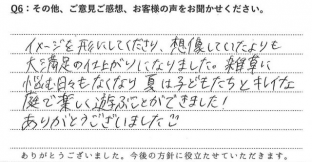 Q6：その他、ご意見ご感想、お客様の声をお聞かせください。
イメージを形にしてくださり、想像していたよりも
大満足の仕上がりになりました。雑草に
悩む日々もなくなり夏は子どもたちとキレイな
庭で楽しく遊ぶことができました！
ありがとうございました
ありがとうございました。今後の方針に役立たせていただきます。